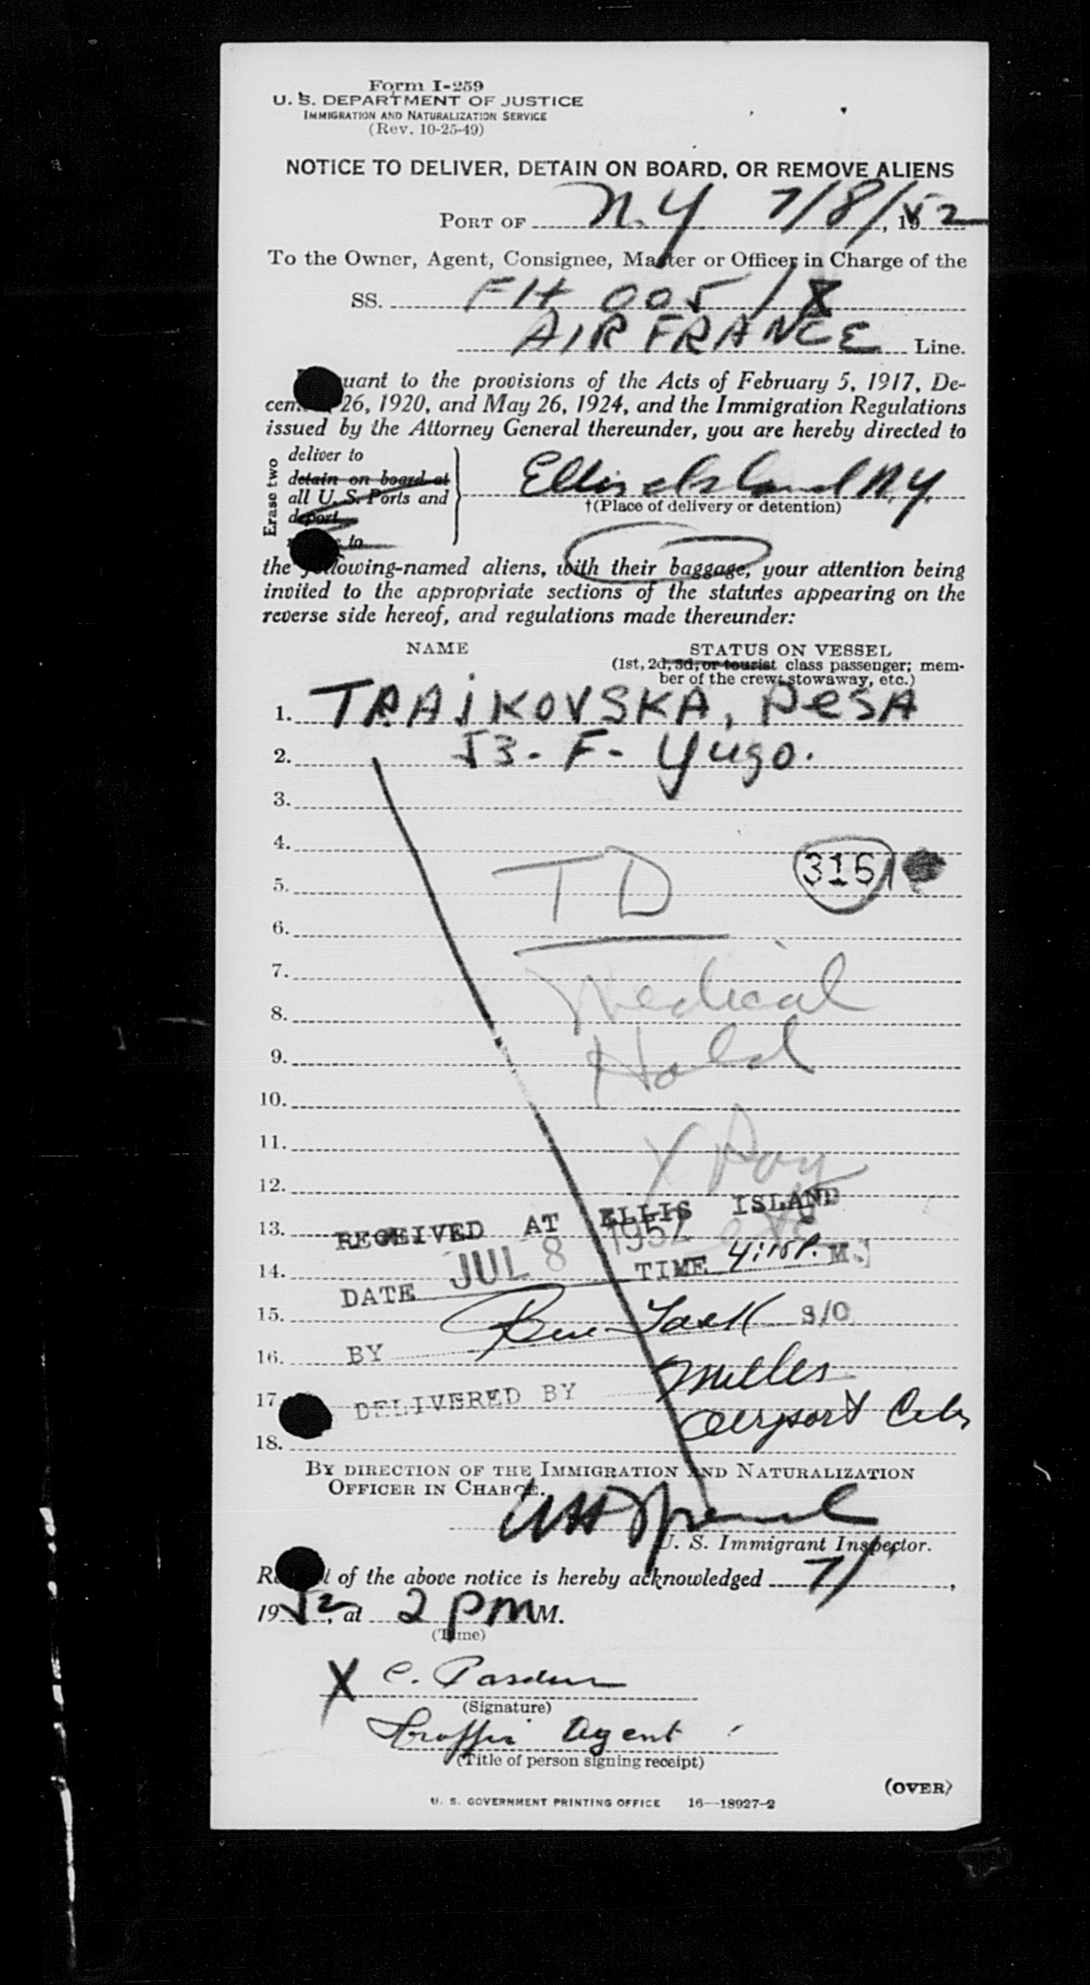 Form I-259
U. S. DEPARTMENT OF JUSTICE
IMMIGRATION AND NATURALIZATION SERVICE
(Rev. 10-25-49)
NOTICE TO DELIVER, DETAIN ON BOARD, OR REMOVE ALIENS
PORT OF N.Y 7/8/, 1952
To the Owner, Agent, Consignee, Master or Officer in Charge of the
SS. FH 005 / 8
AIR FRANCE Line.
uant to the provisions of the Acts of February 5, 1917, De-
cem 26, 1920, and May 26, 1924, and the Immigration Regulations
issued by the Attorney General thereunder, you are hereby directed to
Erase two
deliver to
detain on board at
all U. S. Ports and
deport
to
Ellis Island N.Y.
†(Place of delivery or detention)
the following-named aliens, with their baggage, your attention being
invited to the appropriate sections of the statutes appearing on the
reverse side hereof, and regulations made thereunder:
NAME STATUS ON VESSEL
(1st, 2d, 3d, or tourist class passenger; mem-
ber of the crew; stowaway, etc.)
1. TRAJKOVSKA, PESA
2. 53 - F - Yugo.
3.
4.
316
5. TD
6.
7. Medical
8.
9. Hold
10.
11. X Ray
12.
13. RECEIVED AT ELLIS ISLAND
14. DATE JUL 8 1952 TIME 4:15 P. M.
15.
16. BY S/O
Miller
17. DELIVERED BY
Airport
18.
BY DIRECTION OF THE IMMIGRATION AND NATURALIZATION
OFFICER IN CHARGE.
U. S. Immigrant Inspector.
R t of the above notice is hereby acknowledged 7/ ,
1952, at 2 PM M.
(Time)
X C.
(Signature)
Traffic Agent
(Title of person signing receipt)
(OVER)
U. S. GOVERNMENT PRINTING OFFICE 16—18927-2